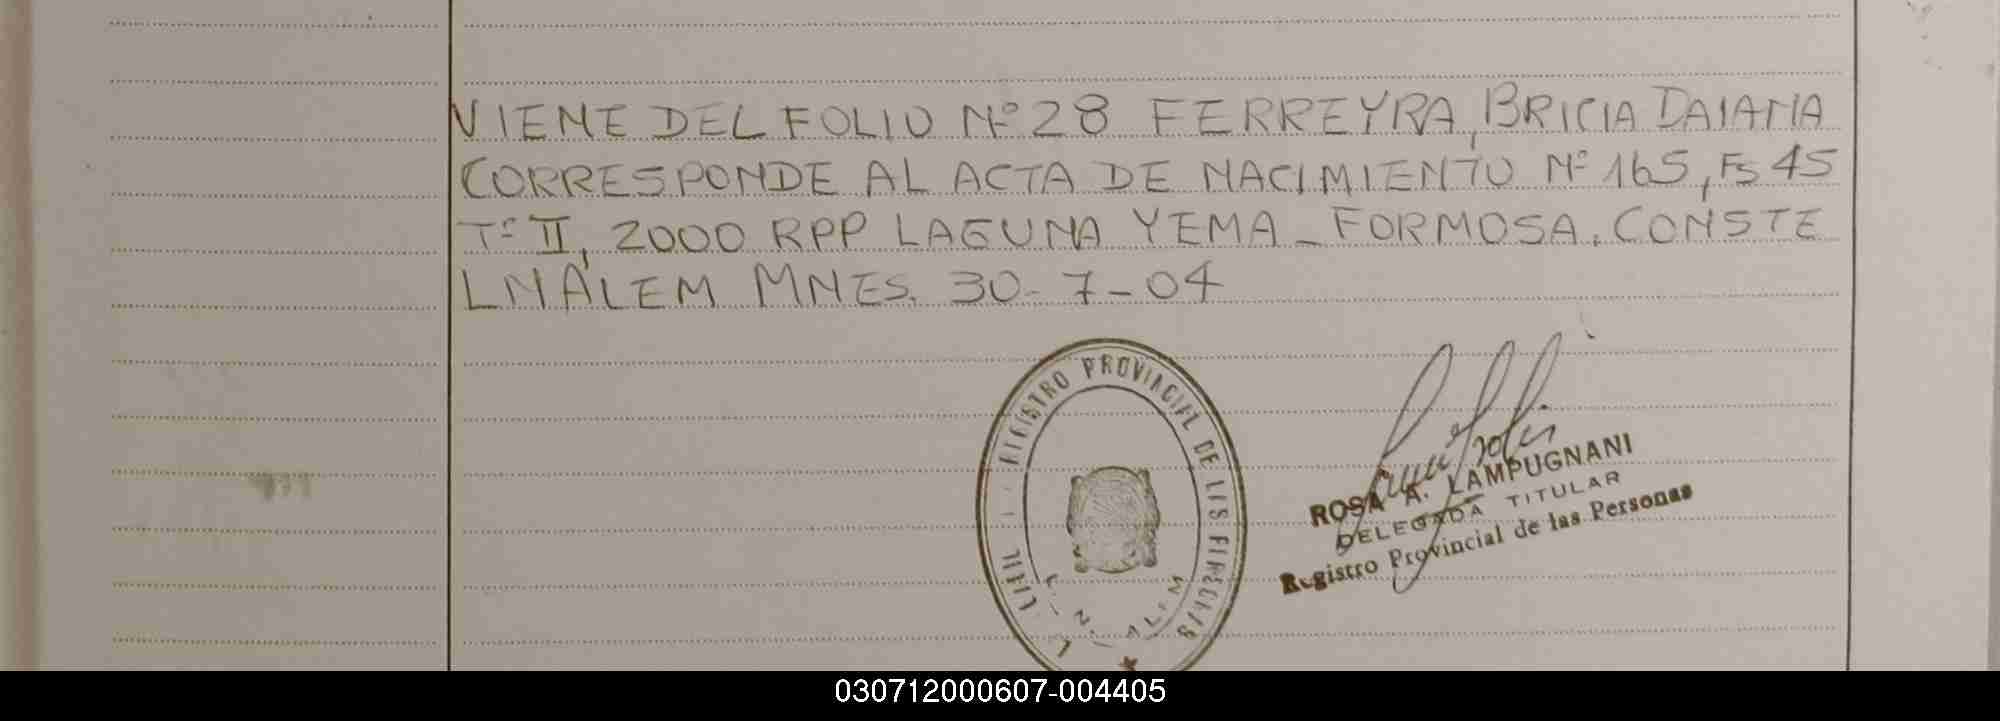 VIENE DEL FOLIO Nº 28 FERREYRA, BRICIA DAIANA
CORRESPONDE AL ACTA DE NACIMIENTO Nº 165, Fs 45
Tº II, 2000 RPP LAGUNA YEMA - FORMOSA. CONSTE
LN ALEM MNES. 30-7-04
REGISTRO PROVINCIAL DE LAS PERSONAS
ROSA A. LAMPUGNANI
DELEGADA TITULAR
Registro Provincial de las Personas
030712000607-004405